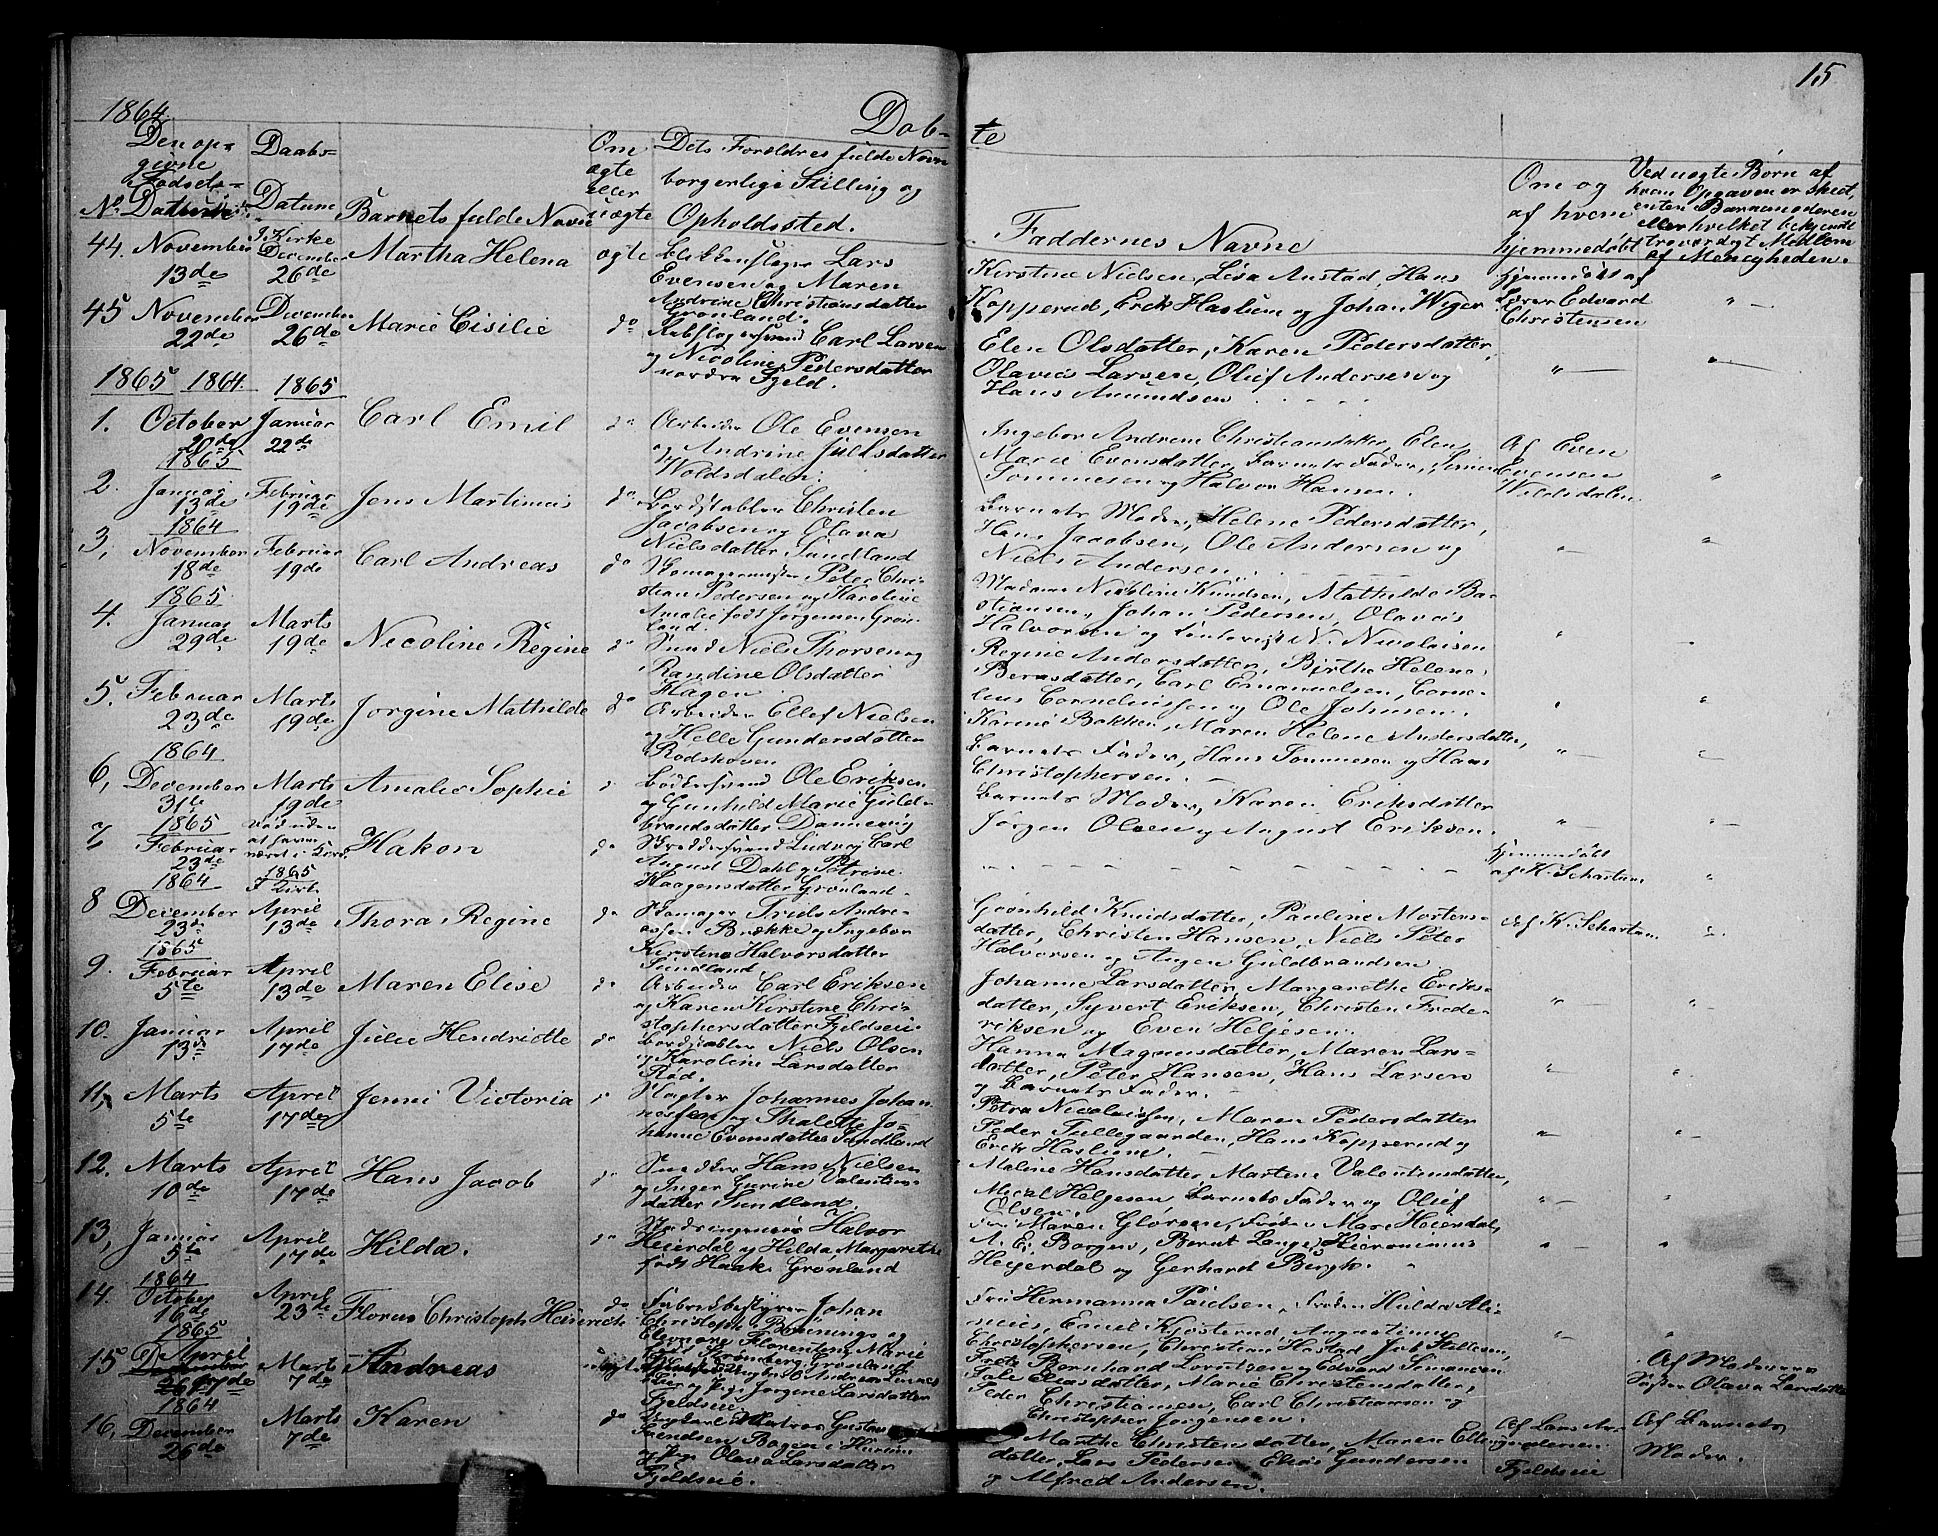 15
1864.
Døb-
te
Den op-
givne
Fødsels-
Datum
Daabs-
Datum
No
Barnets fulde Navn
Om
ægte
eller
uægte
Dets Forældres fulde Navn
borgerlige Stilling og
Opholdssted.
Faddernes Navne
Om og
af hvem
hjemmedøbt
Ved uægte Børn af
hvem Opgaven er skeet,
enten Barnemoderen
eller hvilket bekjendt
troværdigt Medlem
af Menigheden.
44. November
13de
I Kirke
December
26de
Martha Helena
ægte
Blikkenslager Lars
Evensen og Maren
Andrine Christiansdatter
Grønland.
Kirstine Nielsen, Lisa Anstad, Hans
Kopperud, Erik Haslum og Johan Wiger
Hjemmedøbt af
Lærer Edvard
Christensen
45 November
22de
December
26de
Marie Cisilie
do
Rebslagersvend Carl Larsen
og Nicoline Pedersdatter
nordre Fjeld.
Elen Olsdatter, Karen Pedersdatter,
Olavus Larsen, Oluf Andersen og
Hans Amundsen
1865 1864. 1865
1. October
20de
Januar
22de
Carl Emil
do
Arbeider Ole Evensen
og Andrine Juliusdatter
Woldsdalen.
Ingebor Andrea Christiansdatter, Elen
Marie Evensdatter, Barnets Fader, Simen
Tommesen og Halvor Hansen.
Af Even
Evensen
Woldsdalen
1865
2. Januar
13de
Februar
19de
Jens Martinius
do
Bordstabler Christen
Jacobsen og Olava
Nielsdatter Sundland
Barnets Moder, Helene Pedersdatter,
Hans Jacobsen, Ole Andersen og
Niels Andersen
1864
3, November
18de
Februar
19de
Carl Andreas
do
Skomagermester Peter Chri-
stian Pedersen og Karoline
Amalie født Jørgensen Grøn-
land.
Madame Nicoline Knudsen, Mathilde Ba-
stiansen, Johan Pedersen, Olavus
Halvorsen og N. Nicolaisen
1865
4. Januar
29de
Marts
19de
Nicoline Regine
do
Svend Niels Thorsen og
Randine Olsdatter
Hagen
Regine Andersdatter, Birthe Helene
Bernsdatter, Carl Emanuelsen, Corne-
lius Corneliussen og Ole Johnsen.
5. Februar
23de
Marts
19de
Jørgine Mathilde
do
Arbeider Ellef Nielsen
og Helle Gundersdatter
Rødskoven
Karine Bakken, Maren Helene Andersdatter,
Barnets Fader, Hans Tommesen og Hans
Christophersen.
1864
6, December
31te
Marts
19de
Amalie Sophie
Bødkersvend Ole Eriksen
og Gunhild Marie Guld-
brandsdatter Dannevig
Barnets Moder, Karen Eriksdatter
Jørgen Olsen og August Eriksen.
1865
7 Februar
23de
Hakon
do
Skreddersvend Ludvig Carl
August Dahl og Petrine
Haagensdatter Grønland
Hjemmedøbt
af K. Schartum
1864
8 December
23de
1865
I Kirk.
April
13de
Thora Regine
do
Skomager Triels Andre-
assen Brække og Ingebor
Kirstine Halvorsdatter
Sundland
Grønhild Knudsdatter, Pauline Mortens-
datter, Christen Hansen, Niels Peter
Halvorsen og Augen Guldbrandsen
Af K. Schartum
1865
9. Februar
5te
April
13de
Maren Elise
do
Arbeider Carl Eriksen
og Karen Kirstine Chri-
stophersdatter Fjeldseie
Johanne Larsdatter, Margarethe Eriks-
datter, Syvert Eriksen, Christen Frede-
riksen og Even Helgesen.
10. Januar
13de
April
17de
Julie Hendriette
do
Bordstabler Niels Olsen
og Karoline Larsdatter
Rød.
Hanna Magnusdatter, Maren Lars-
datter, Peter Hansen, Hans Larsen
og Barnets Fader.
11, Marts
5te
April
17de
Jenni Victoria
Slagter Johannes Johan-
nessen og Thalette Jo-
hanne Evensdatter Sundland
Petra Nicolaisen, Maren Pedersdatter
Peder Tollegaarden, Hans Kopperud og
Erik Haslum.
12, Marts
10de
April
17de
Hans Jacob
do
Snedker Hans Nielsen
og Inger Gurine Valentins-
datter Sundland
Maline Hansdatter, Martene Valentinsdatter,
Michl Helgesen Barnets Fader og Oluf
Olsen.
13, Januar
5te
April
17de
Hilda.
do
Stadsingeniør Halvor
Heierdal og Hilda Margarethe
født Haak Grønland
Fru Maren Glørsen, Frøken Mari Heierdal,
A. E. Borgen, Bernt Lange, Hieronimus
Heyerdal og Gerhard Bergh.
1864
14. October
16de
April
23de
Florus Christoph Heinrich
do
Fabrikbestyrer Johan
Christoph Bønnings og
Elenore Florentine Marie
født Kromberg, Grønland
Fru Hermanna Paulsen, Frøken Hulda
Emil Kjøsterud, Augustinus
Christophersen, Christian Hastad, Job Hellesen,
Fretz Bernhard Lorutzen og Edvard Simensen
1865
15 April
Marts
7de
Andreas
uægte
Andreas Linnes
og Pige Jørgine Larsdatter
Fjeldseie
Eliasdatter, Marie Christensdatter,
Peder Christiansen, Carl Christiansen og
Christopher Jørgensen.
Af Moderens
Søster Olava Larsdatter
1864
16, December
26de
Marts
7de
Karen
do
Ungkarl Mathias Gustav
Svendsen Bogen i Hurum
og Pige Olava Larsdatter
Fjeldseie.
Marthe Christensdatter, Maren Ellings-
datter, Lars Pedersen, Elias Gundersen
og Alfred Andersen.
Af Lars An-
dersen
Fjeldseie
Af Barnets
Moder.